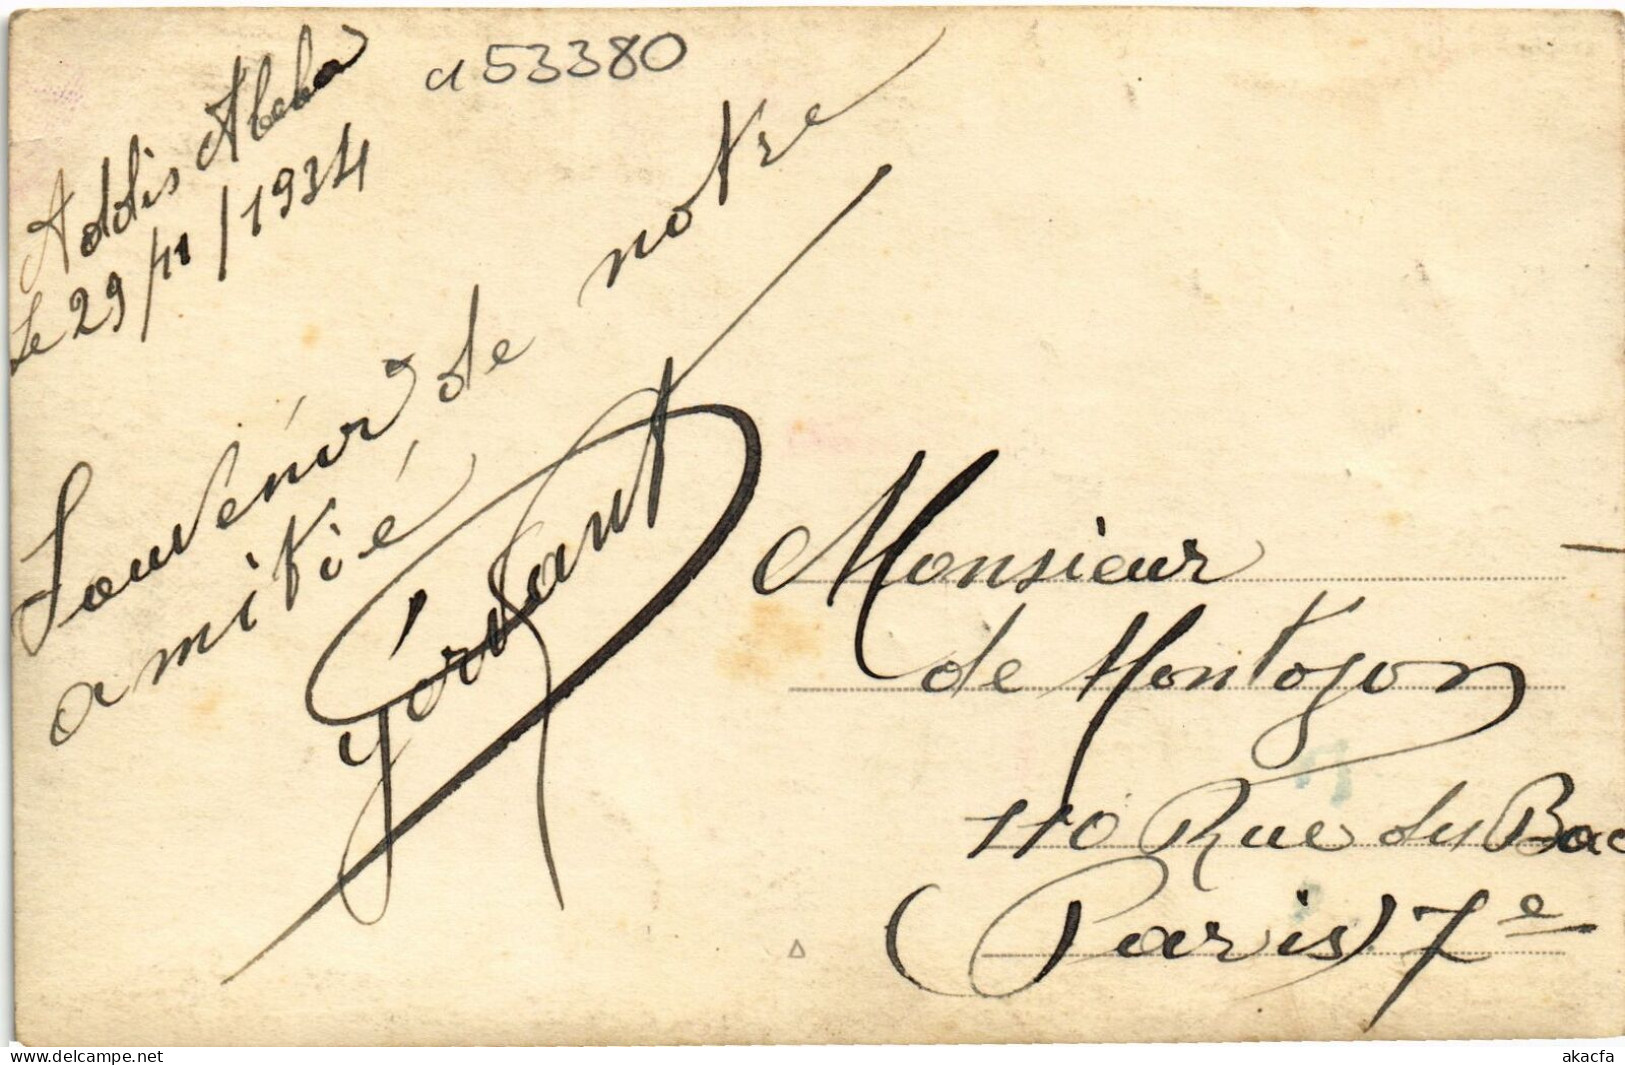 a53380
Addis Abeba
Le 29/11/1934
Souvenir de notre
amitié
Monsieur
de Montozon
110 Rue du Bac
(Paris) 7e
www.delcampe.net
akacfa